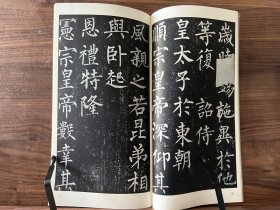 歲時錫施異於他
等復詔侍
皇太子於東朝
順宗皇帝深仰其
風親之若昆弟相
與卧起
恩禮特隆
憲宗皇帝數幸其